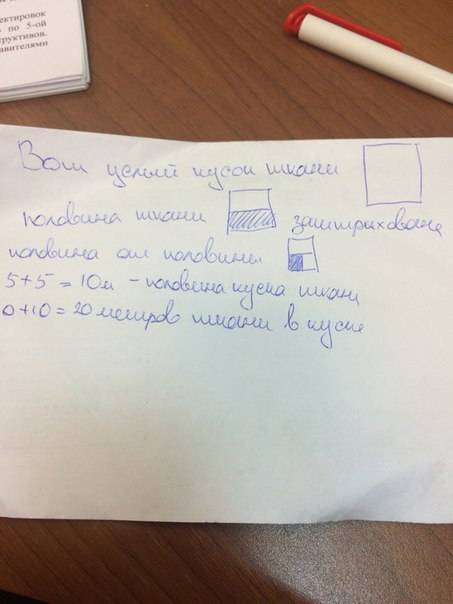 ектировок
по 5-ой
структивов.
авителями
Вот целый кусок ткани
половина ткани заштрихована
половина от половины
5+5=10м - половина куска ткани
0+10=20 метров ткани в куске